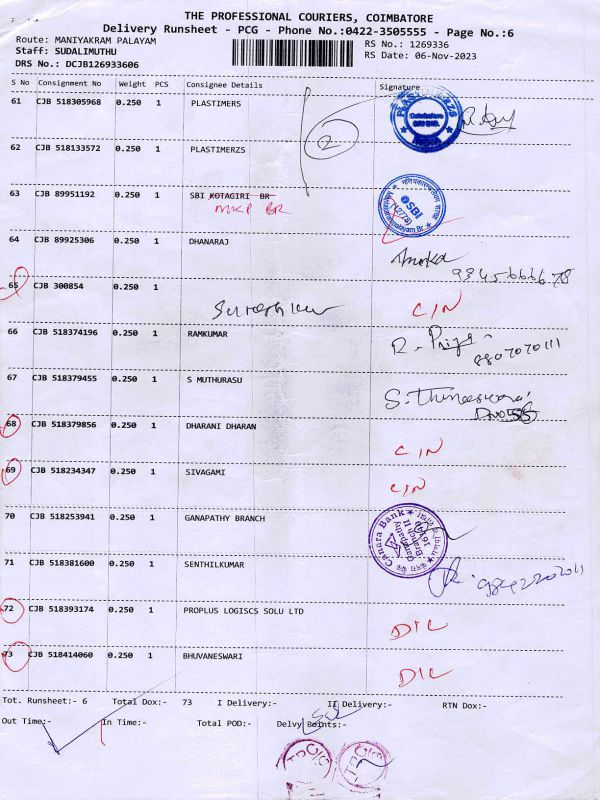 THE PROFESSIONAL COURIERS, COIMBATORE
Delivery Runsheet - PCG - Phone No.:0422-3505555 - Page No.:6
Route: MANIYAKRAM PALAYAM
RS No.: 1269336
Staff: SUDALIMUTHU
RS Date: 06-Nov-2023
DRS No.: DCJB126933606
S No Consignment No Weight PCS Consignee Details Signature
61 CJB 518305968 0.250 1 PLASTIMERS
2
62 CJB 518133572 0.250 1 PLASTIMERZS
63 CJB 89951192 0.250 1 SBI KOTAGIRI BR
MKP BR
SBI
64 CJB 89925306 0.250 1 DHANARAJ
65 CJB 300854 0.250 1
C/N
66 CJB 518374196 0.250 1 RAMKUMAR
R. Priya
8807070111
67 CJB 518379455 0.250 1 S MUTHURASU
68 CJB 518379856 0.250 1 DHARANI DHARAN
C/N
69 CJB 518234347 0.250 1 SIVAGAMI
C/N
70 CJB 518253941 0.250 1 GANAPATHY BRANCH
Canara Bank
Ganapathy
Branch II
71 CJB 518381600 0.250 1 SENTHILKUMAR
72 CJB 518393174 0.250 1 PROPLUS LOGISCS SOLU LTD
D/L
73 CJB 518414060 0.250 1 BHUVANESWARI
D/L
Tot. Runsheet:- 6 Total Dox:- 73 I Delivery:- II Delivery:- RTN Dox:-
Out Time:- In Time:- Total POD:- Delvy Points:-